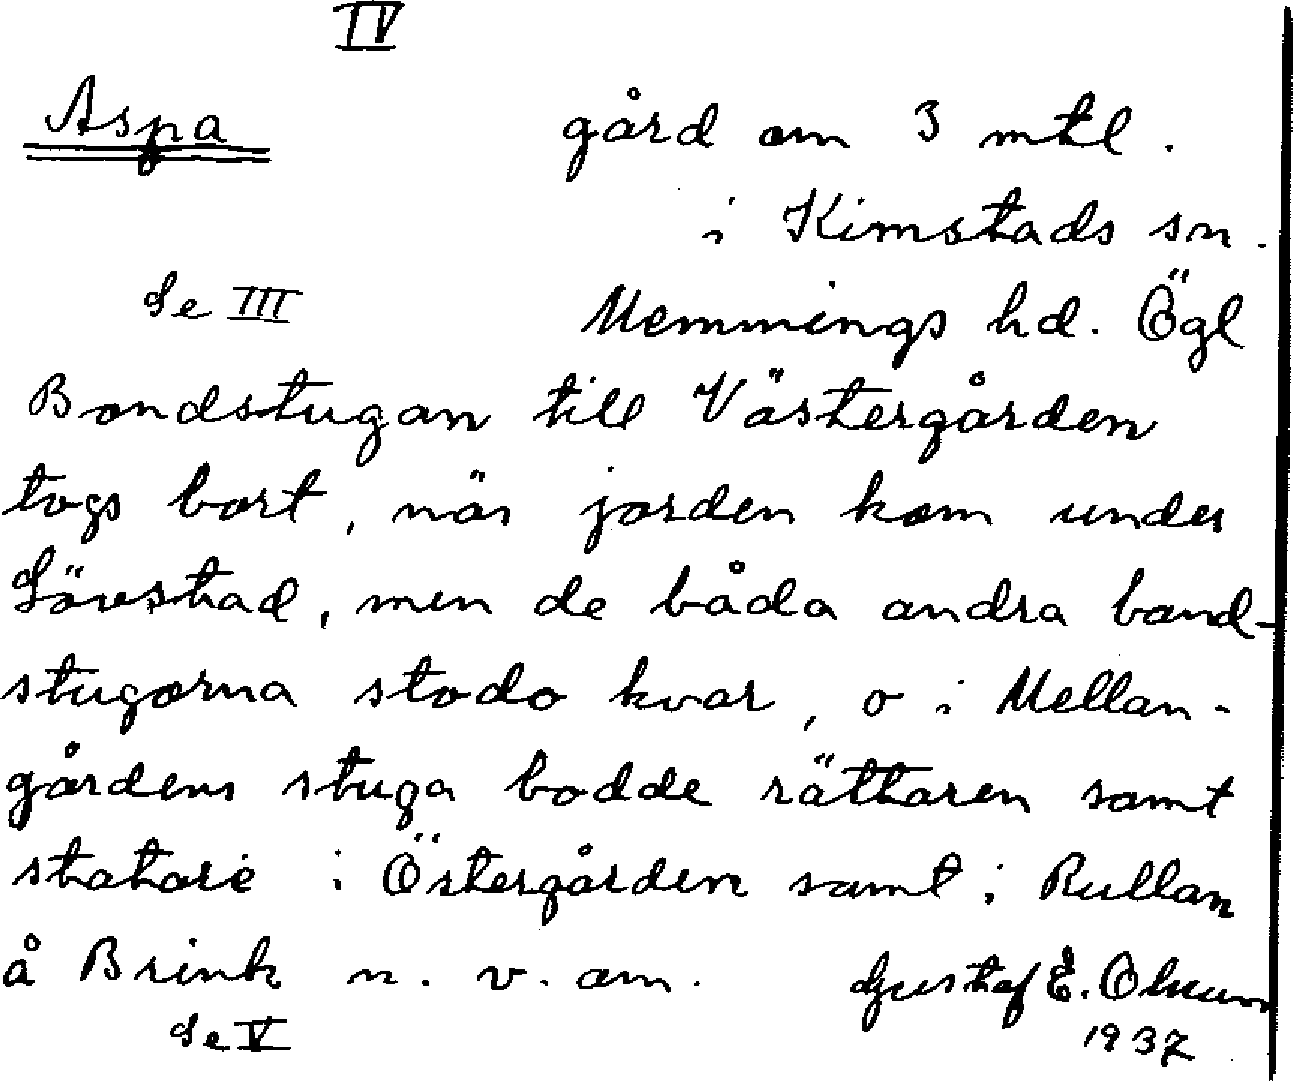 IV
Aspa gård om 3 mtl.
i Kimstads sn.
Se III Memmings hd. Ögl
Bondstugan till Västergården
togs bort, när jorden kom under
Lövstad, men de båda andra bond-
stugorna stodo kvar, o i Mellan-
gårdens stuga bodde rättaren samt
statare i Östergården samt i Rullan
å Brink n. v. om. Gustaf E.
Se V 1937